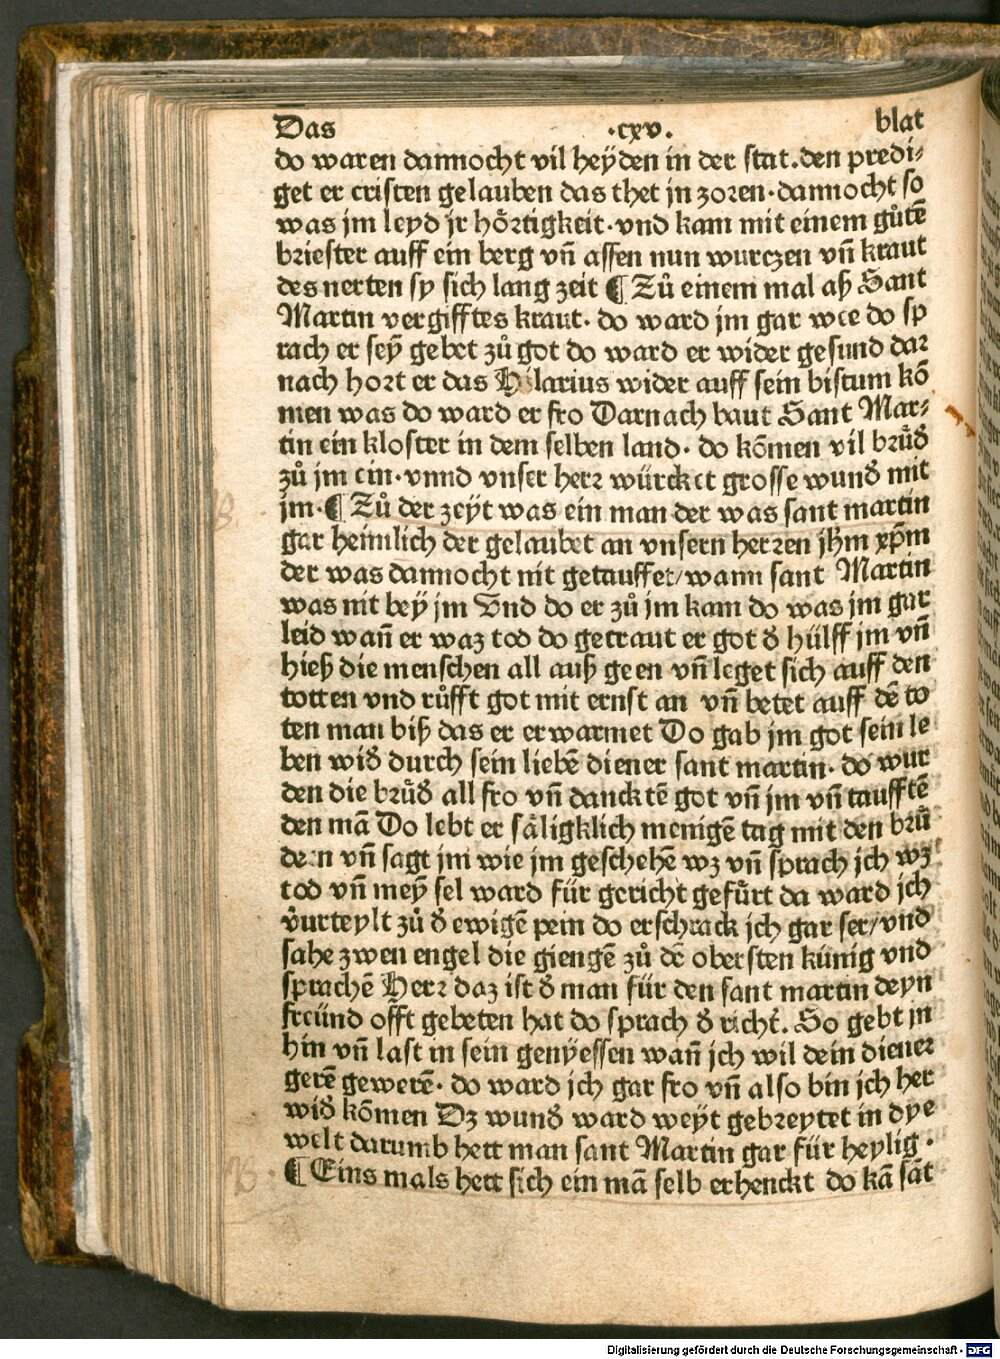 Das .cxv. blat
do waren dannocht vil heÿden in der stat.den predi⸗
get er cristen gelauben das thet jn zoren·dannocht so
was jm leyd jr hoͤrtigkeit·vnd kam mit einem gůtē
briester auff ein berg vñ assen nun wurczen vñ kraut
des nerten sy sich lang zeit ¶ Zů einem mal aß Sant
Martin vergifftes kraut· do ward jm gar wee do sp
rach er seÿ gebet zů got do ward er wider gesund dar
nach hort er das Hilarius wider auff sein bistum kō
men was do ward er fro Darnach baut Sant Mar⸗
tin ein kloster in dem selben land· do kōmen vil brůd̕
zů jm ein·vnnd vnser herr würcket grosse wund̕ mit
jm·¶ Zů der zeÿt was ein man der was sant martin
gar heimlich der gelaubet an vnsern herren jhm̄ xp̄m
der was dannocht nit getauffet/wann sant Martin
was nit beÿ jm Vnd do er zů jm kam do was jm gar
leid wañ er waz tod do getraut er got d̕ hülff jm vñ
hieß die menschen all auß geen vñ leget sich auff den
totten vnd růfft got mit ernst an vñ betet auff dē to
ten man biß das er erwarmet Do gab jm got sein le
ben wid̕ durch sein liebē diener sant martin· do wur
den die brůd̕ all fro vñ dancktē got vñ jm vñ taufftē
den mā Do lebt er sāligklich menigē tag mit den brů
dern vñ sagt jm wie jm geschehē wz vñ sprach jch wz
tod vñ meÿ sel ward für gericht gefůrt da ward jch
v̊urteylt zů d̕ ewigē pein do erschrack jch gar ser/vnd
sahe zwen engel die giengē zů dē obersten künig vnd
sprachē Herr daz ist d̕ man für den sant martin deyn
freünd offt gebeten hat do sprach d̕ richt̕. So gebt jn
hin vñ last in sein genÿessen wañ jch wil dein diener
gerē gewerē· do ward jch gar fro vñ also bin jch her
wid̕ kōmen Dz wund̕ ward weÿt gebreytet in dye
welt darumb hett man sant Martin gar für heylig·
¶ Eins mals hett sich ein mā selb erhenckt do kā sāt
Digitalisierung gefördert durch die Deutsche Forschungsgemeinschaft - DFG